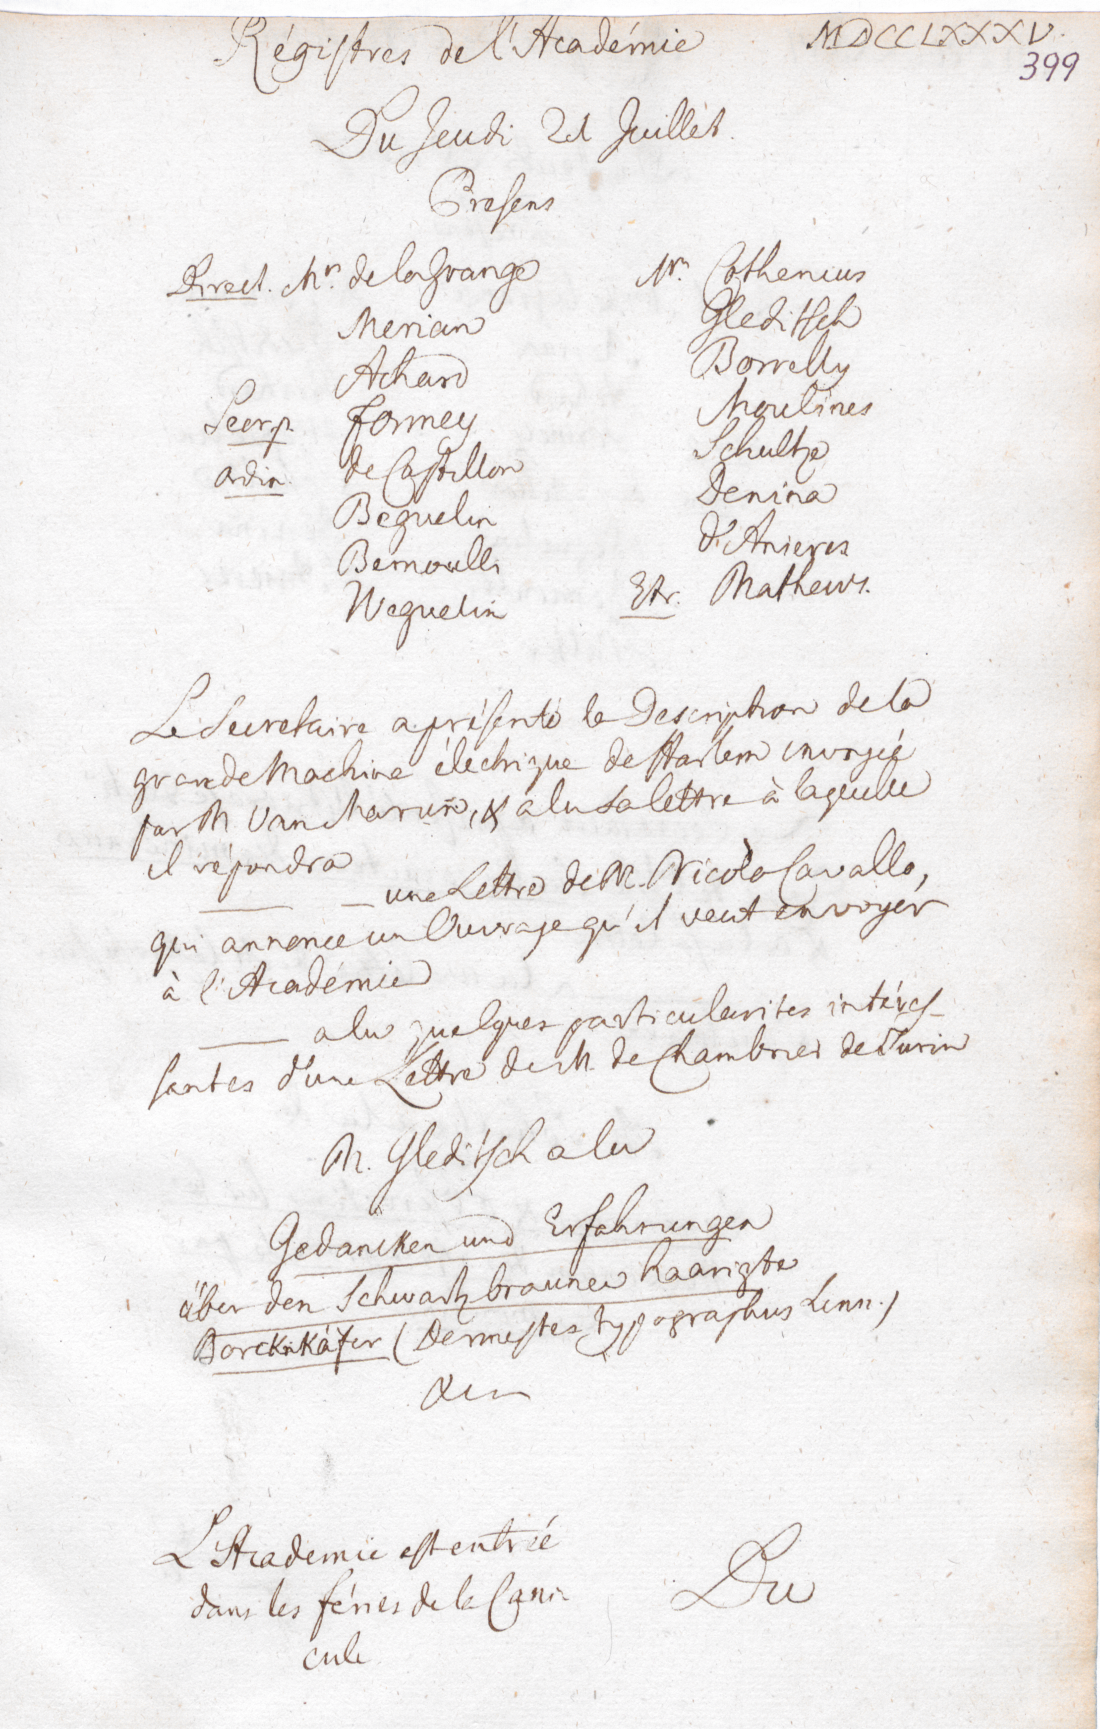 Régistres de l'Académie
MDCCLXXXV.
399
Du Jeudi 21 Juillet.
Presens
Direct. Mrs. de la Grange
Merian
Achard
Secr. p. Formey
ordin de Castillon
Beguelin
Bernoulli
Weguelin
Mrs. Cothenius
Gleditsch
Borrelly
Moulines
Schultze
Denina
d'Anieres
Etr. Mathews.
Le Secretaire a présenté la Description de la
grande Machine électrique de Harlem envoyée
par M Van Marum, & a lu sa lettre à laquelle
il répondra
— — une Lettre de M. Nicolo Cavallo,
qui annonce un Ouvrage qu'il veut envoyer
à l'Académie
— a lu quelques particularites intéres-
santes d'une Lettre de M. de Chambrier de Turin
M. Gleditsch a lu
Gedancken und Erfahrungen
über den Schwartzbraunen haarigte
Borckkäfer (Dermestes typographus Linn.)
L'Academie est entrée
dans les féries de la Cani-
cule
Du